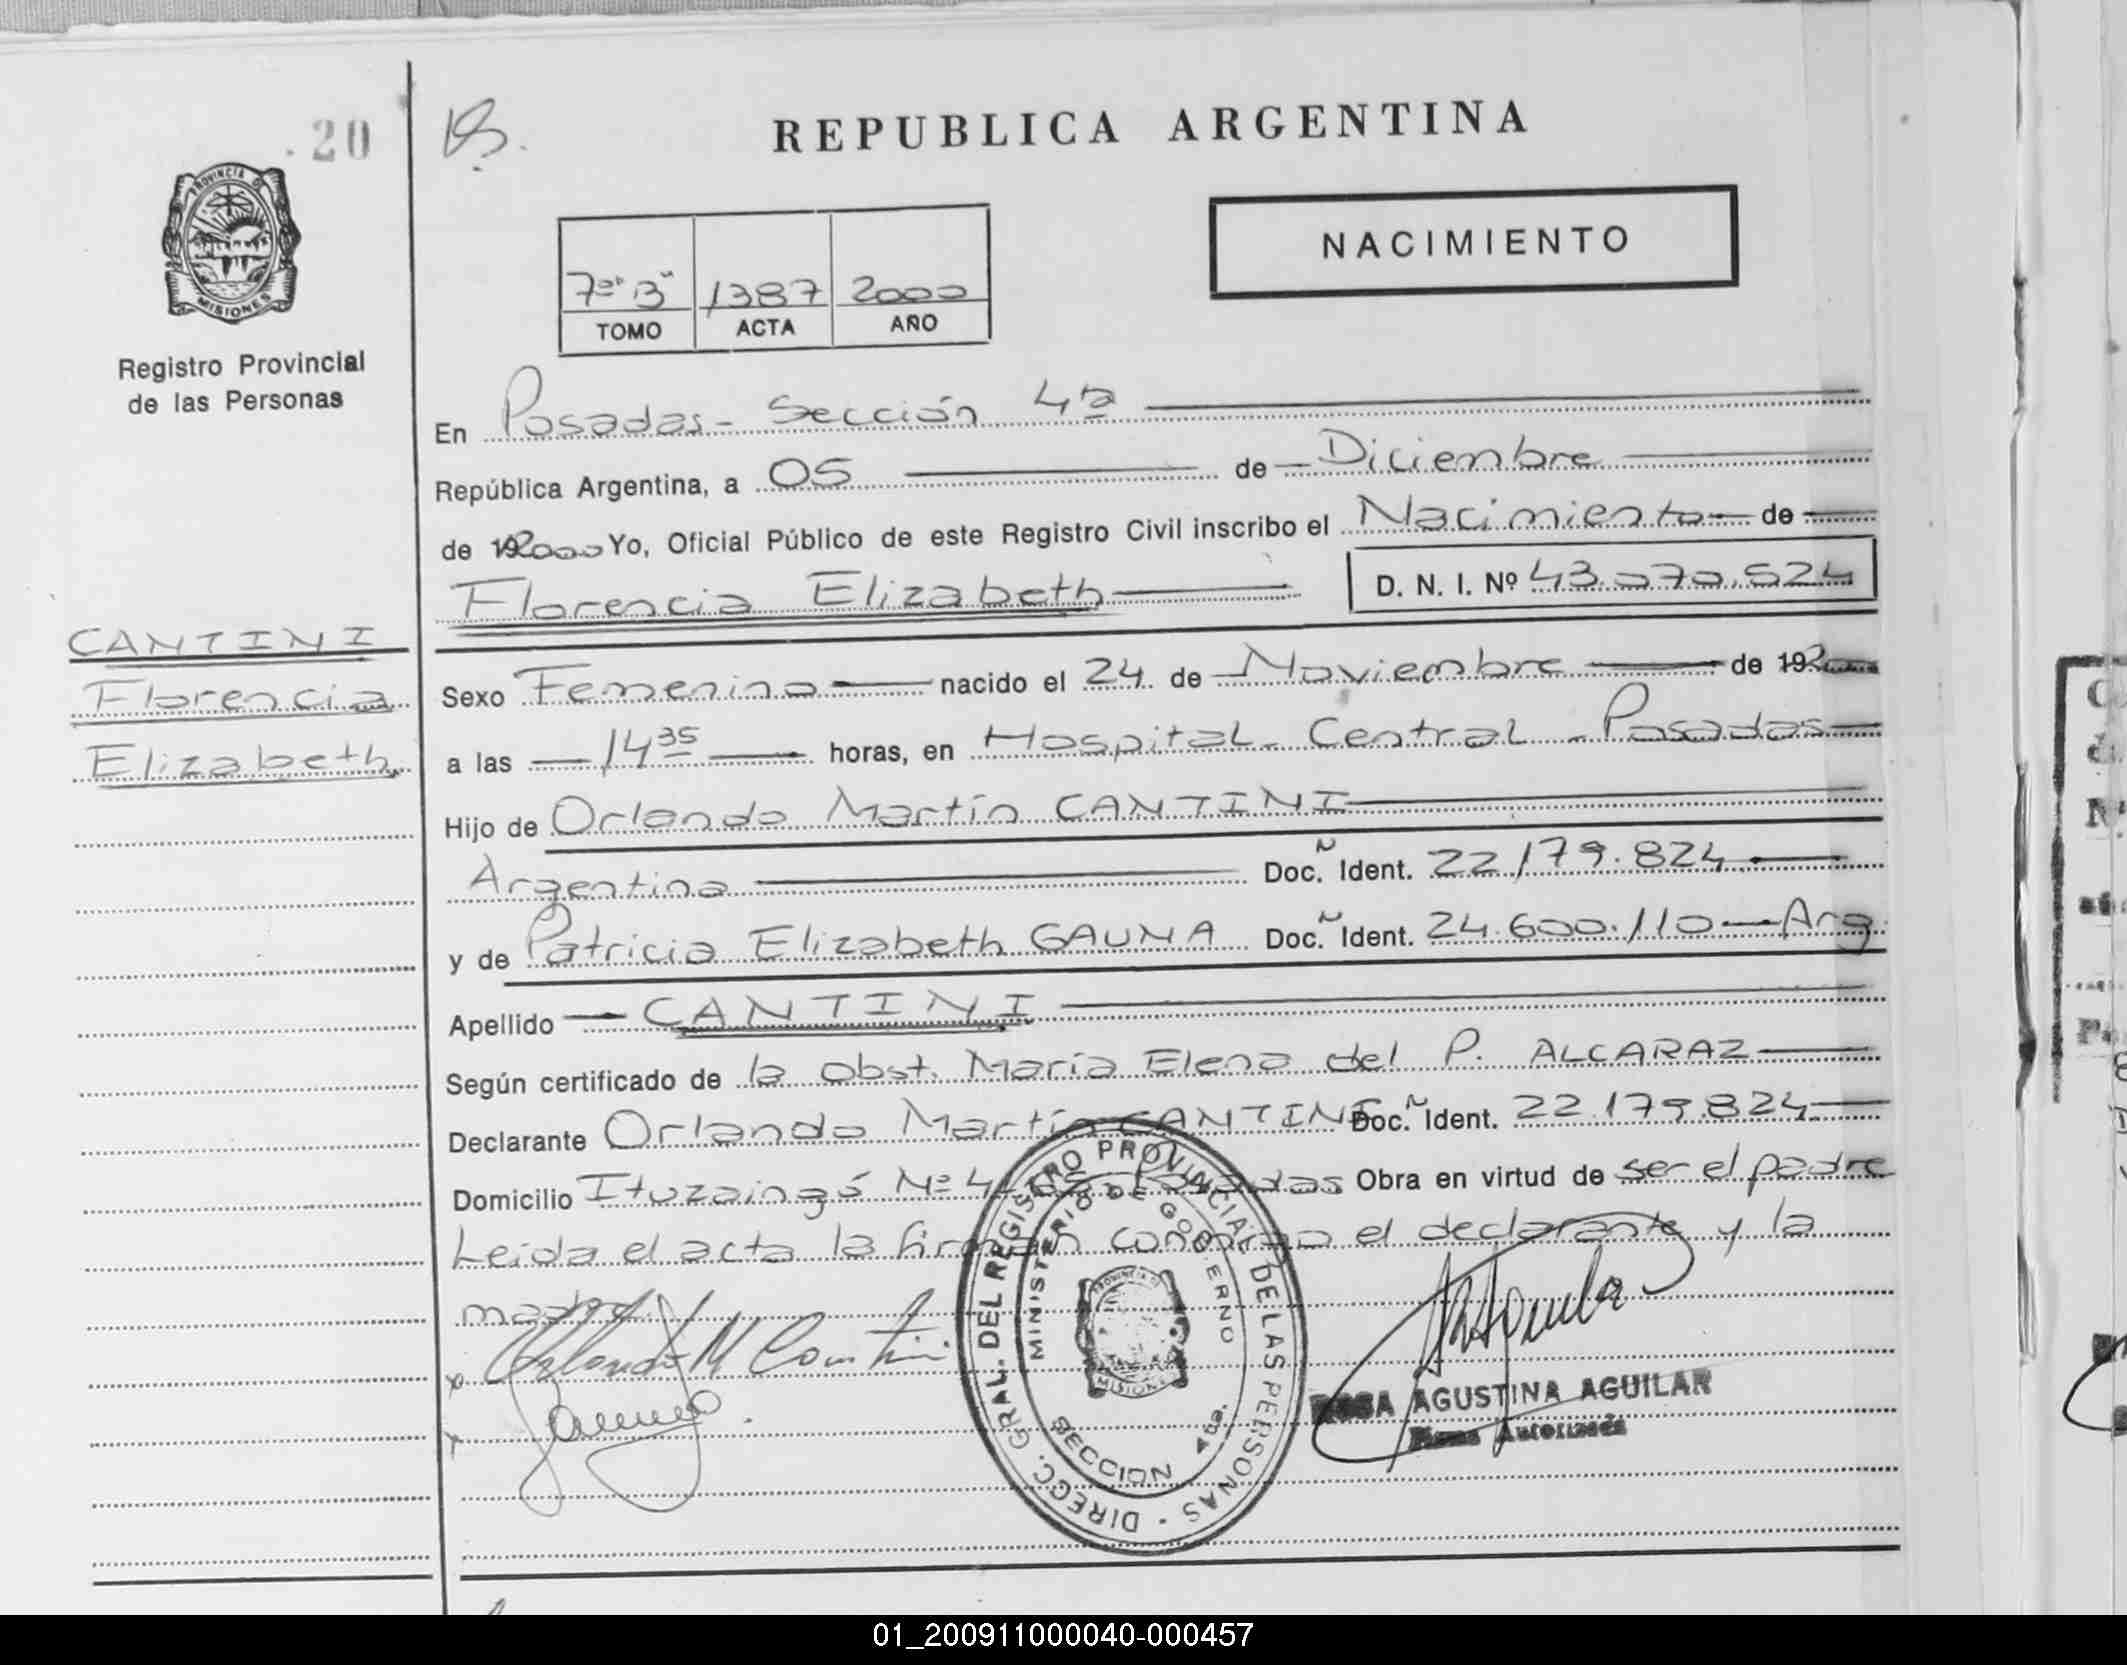 .20
REPUBLICA ARGENTINA
PROVINCIA DE
MISIONES
Registro Provincial
de las Personas
NACIMIENTO
7º "B" 1387 2000
TOMO ACTA AÑO
En Posadas - Sección 4ta
República Argentina, a 05 de Diciembre
de 2000 Yo, Oficial Público de este Registro Civil inscribo el Nacimiento de
Florencia Elizabeth D. N. I. Nº 43.070.524
CANTINI
Florencia
Elizabeth
Sexo Femenino nacido el 24 de Noviembre de 192000
a las 14 35 horas, en Hospital Central - Posadas
Hijo de Orlando Martín CANTINI
Argentina Doc. Ident. 22.179.824
y de Patricia Elizabeth GAUNA Doc. Ident. 24.600.110 - Arg
Apellido CANTINI
Según certificado de la Obst. María Elena del P. ALCARAZ
Declarante Orlando Martín CANTINI Doc. Ident. 22.179.824
Domicilio Ituzaingó Nº Posadas Obra en virtud de ser el padre
Leida el acta la firman conmigo el declarante y la
madre.
x Orlando M Cantini
x Gauna.
DIREC. GRAL. DEL REGISTRO PROVINCIAL DE LAS PERSONAS
MINISTERIO DE GOBIERNO
PROVINCIA DE
MISIONES
SECCION 4ta.
ROSA AGUSTINA AGUILAR
Firma Autorizada
01_200911000040-000457